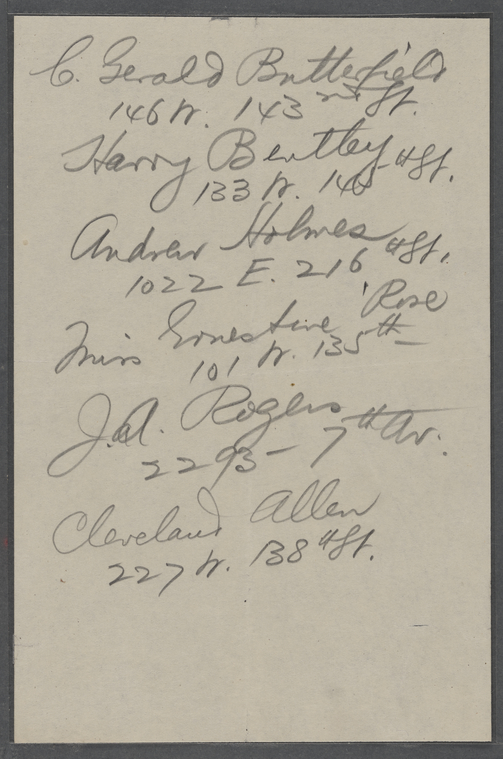 C. Gerald Butterfield
146 W. 143rd St.
Harry Bentley
133 W. 145th St.
Andrew Holmes
1022 E. 216th St.
Miss Ernestine Rose
101 W. 135th
J. A. Rogers
2293 - 7th Av.
Cleveland Allen
227 W. 138th St.